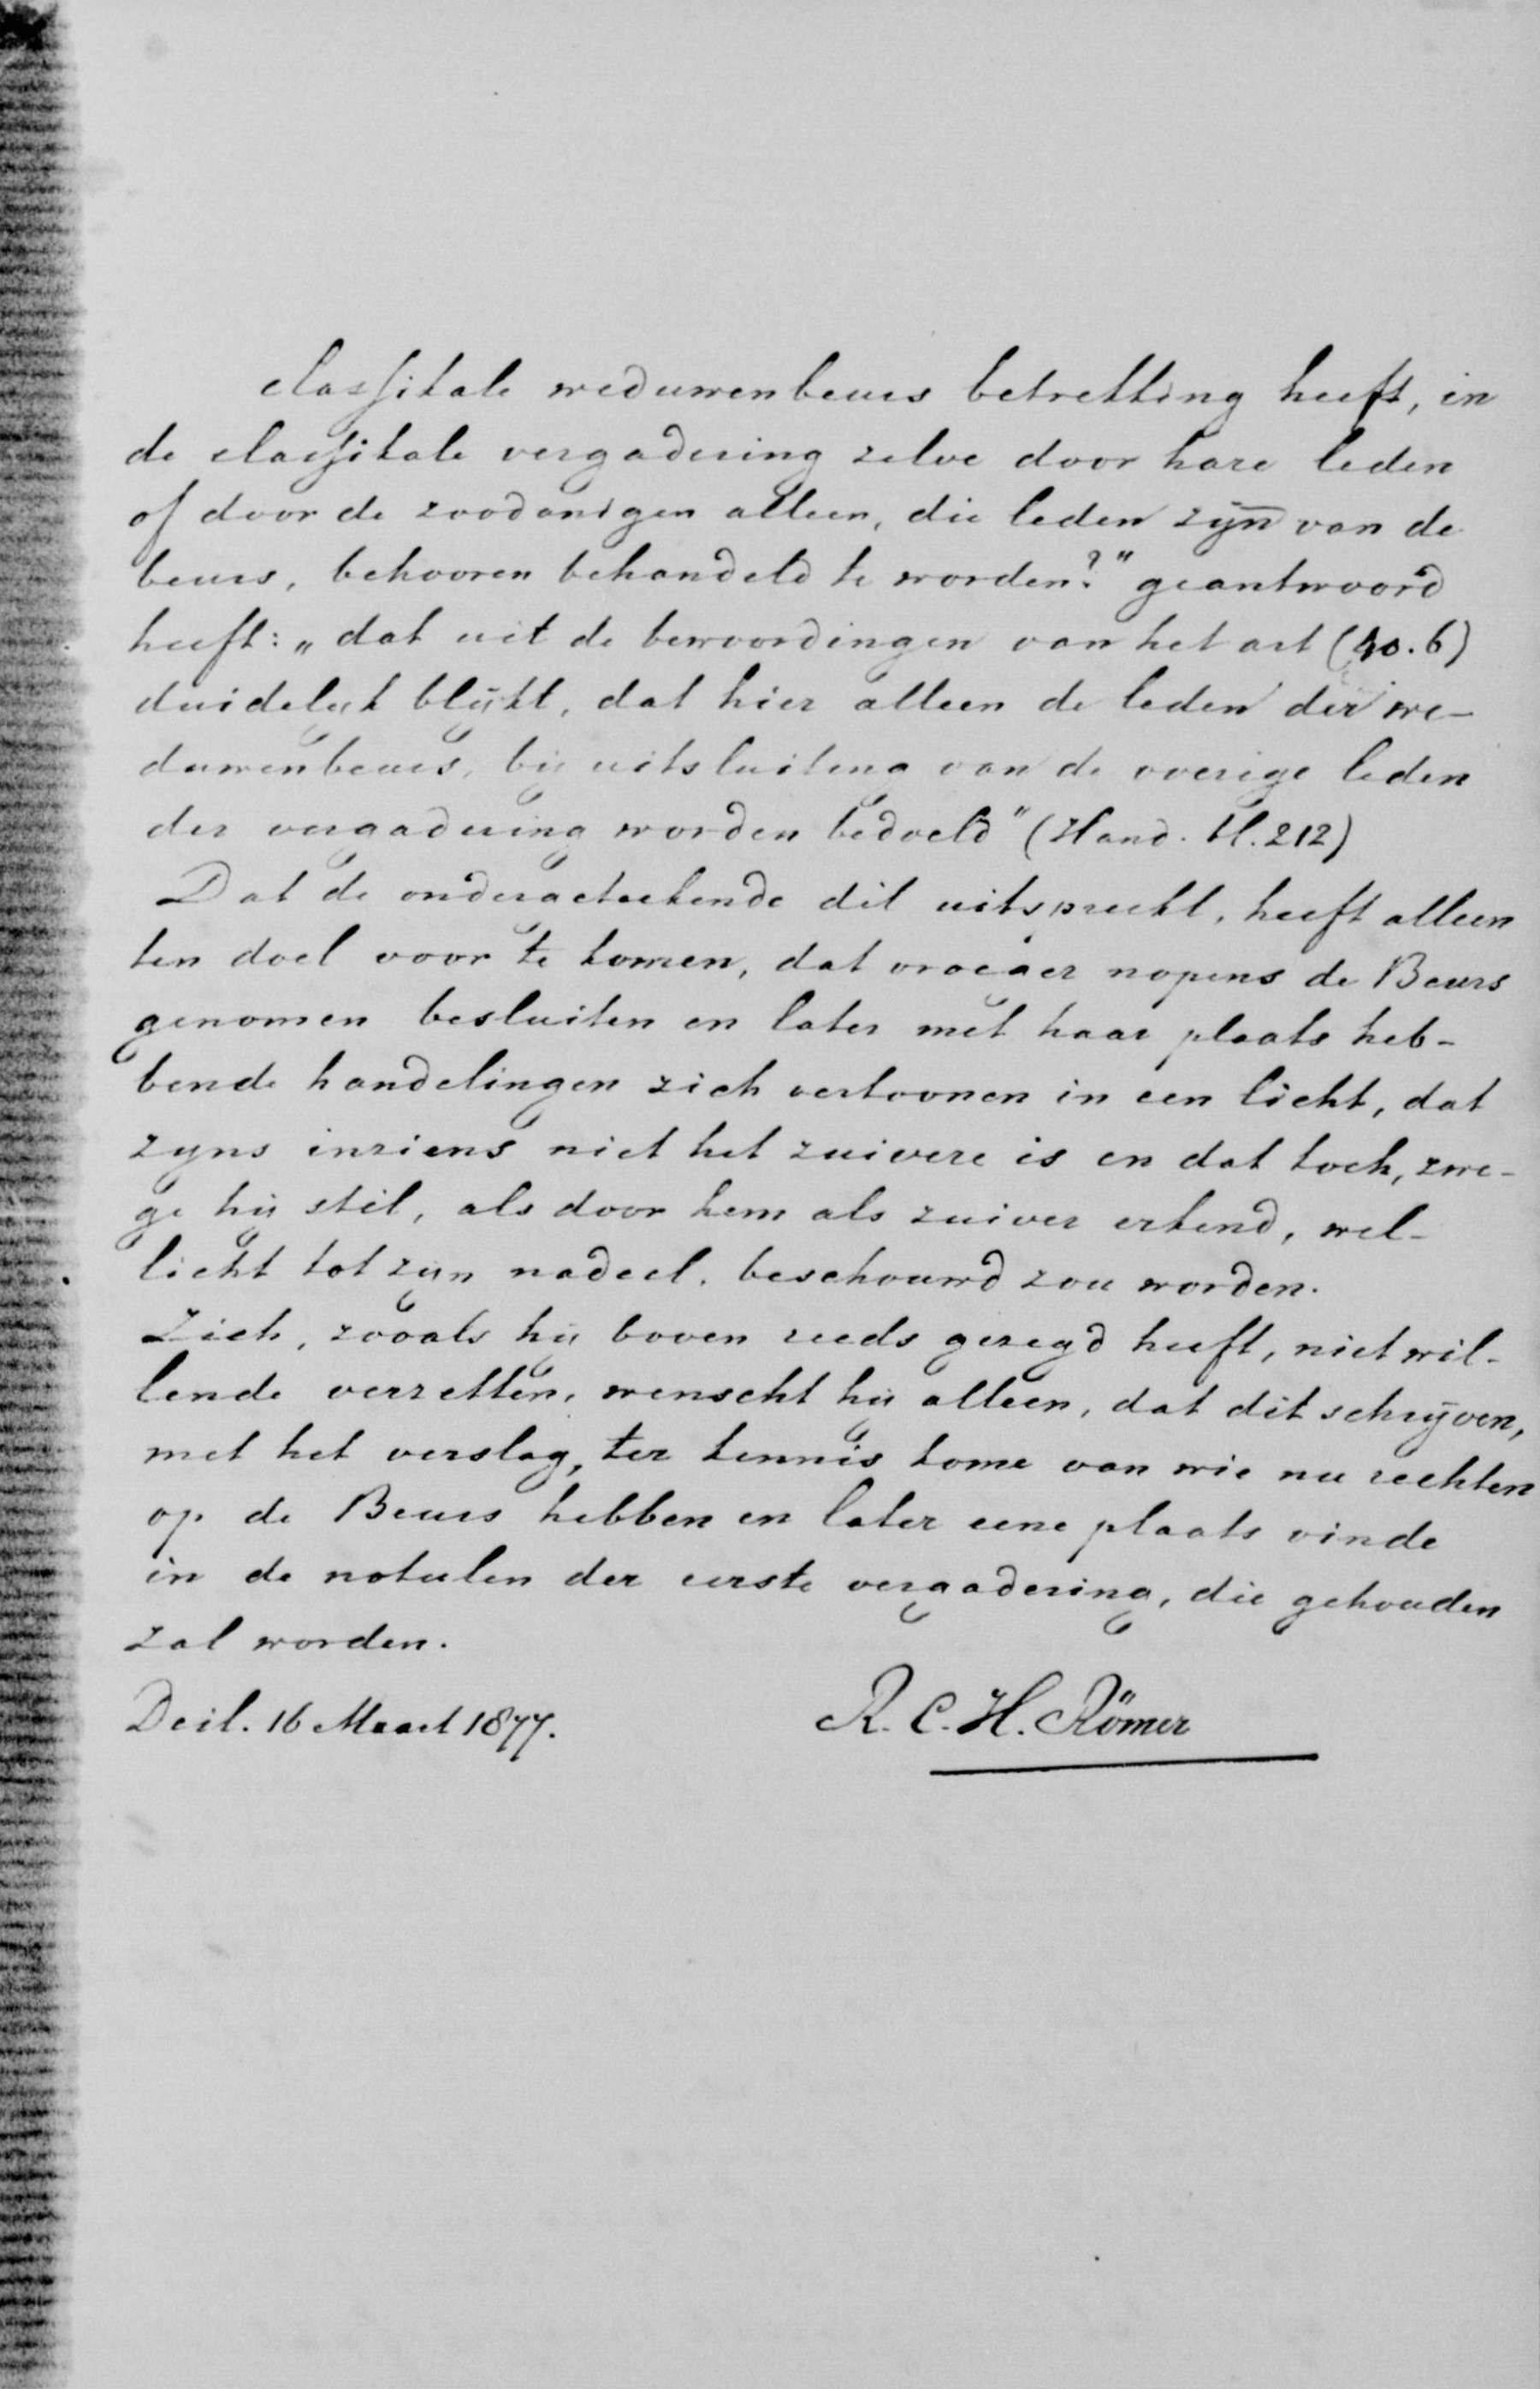 classikale weduwenbeurs betrekking heeft, in
de classikale vergadering zelve door hare leden
of door de zoodanigen alleen, die leden zijn van de
beurs, behooren behandeld te worden?" geantwoord
heeft: „dat uit de bewoordingen van het art (40.6)
duidelijk blijkt, dat hier alleen de leden der we-
duwenbeurs, bij uitsluiting van de overige leden
der vergadering worden bedoeld" (Hand. bl. 212)
Dat de ondergeteekende dit uitspreekt, heeft alleen
ten doel voor te komen, dat vroeger nopens de Beurs
genomen besluiten en later met haar plaats heb-
bende handelingen zich vertoonen in een licht, dat
zyns inziens niet het zuivere is en dat toch, zwe-
ge hij stil, als door hem als zuiver erkend, wel-
licht tot zijn nadeel, beschouwd zou worden.
Zich, zooals hij boven reeds gezegd heeft, niet wil-
lende verzetten, wenscht hij alleen, dat dit schrijven,
met het verslag, ter kennis kome van wie nu rechten
op de Beurs hebben en later eene plaats vinde
in de notulen der eerste vergadering, die gehouden
zal worden.
Deil. 16 Maart 1877. R. C. H. Römer